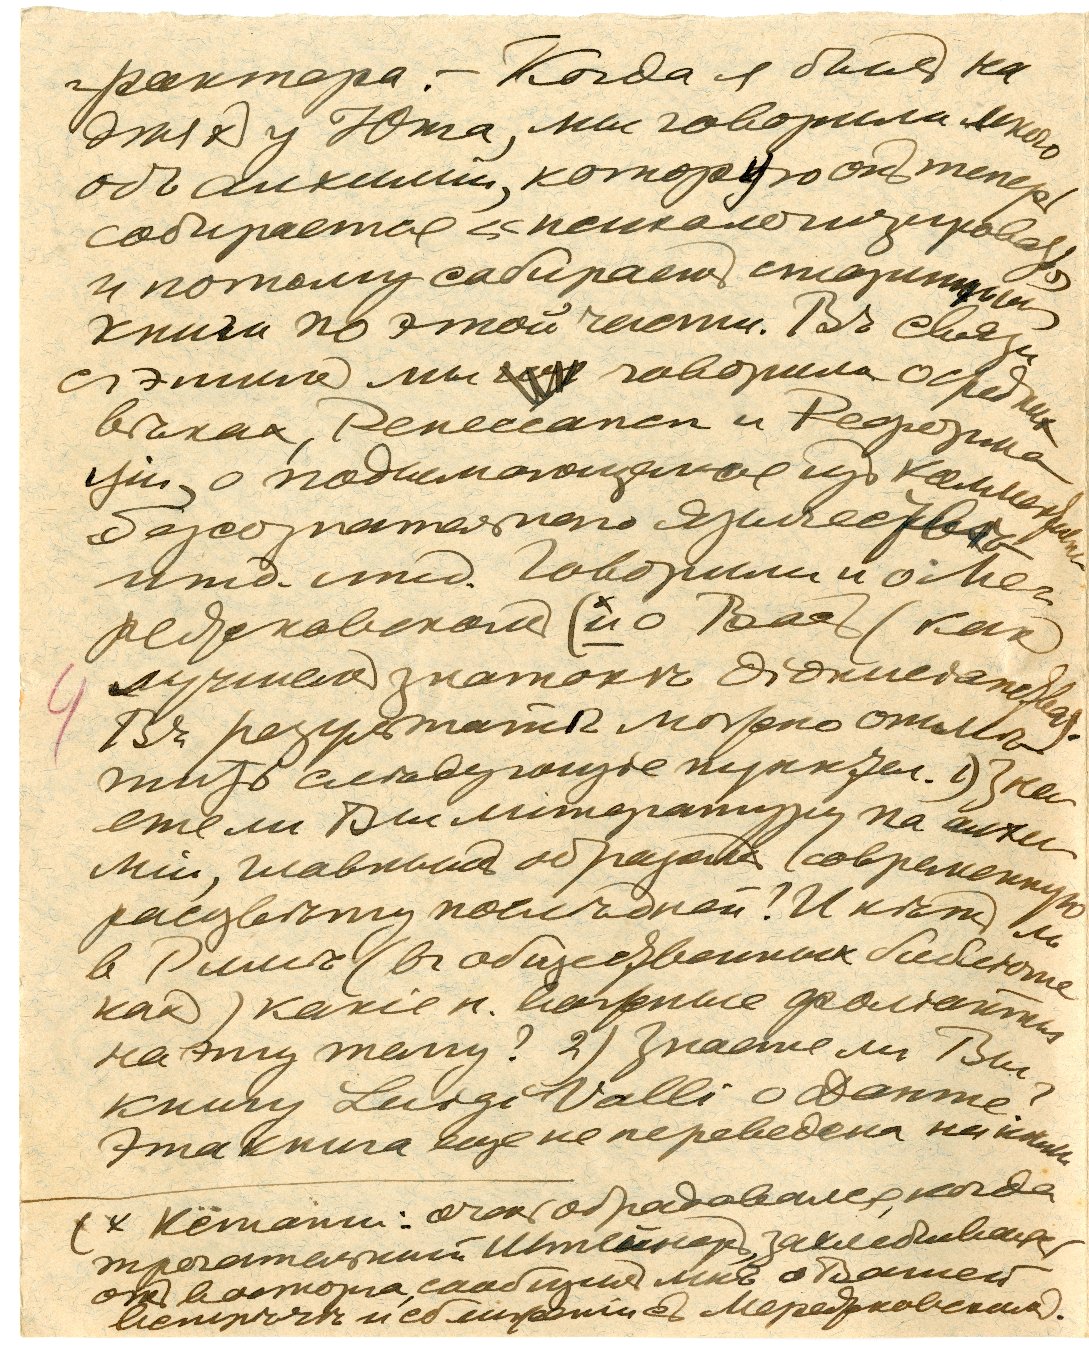 трактера. — Когда я былъ на
дняхъ у Юнга, мы говорили много
объ алхиміи, которую онъ теперь
собирается психологизировать
и потому собираетъ старинныя
книги по этой части. Въ связи
съ этимъ мы говорили о среднихъ
вѣкахъ, Ренессансѣ и Реформа
ціи, о поднимающемся изъ коллективн.
безсознательнаго язычествѣ
и т.д. и т.д. Говорили и о Ме-
режковскомъ (х и о Васъ (какъ
лучшемъ знатокѣ
Въ результатѣ можно отмѣ
тить слѣдующіе пункты. 1) Зна
ете ли Вы литературу по алхи
міи, главнымъ образомъ современную
расцвѣту послѣдней? И нѣтъ ли
в Римѣ (въ общественныхъ библіоте
кахъ) какіе н. важные фоліанты
на эту тему? 2) Знаете ли Вы
книгу Luigi Valli о Данте?
Эта книга еще не переведена на нѣмец.
(х Кстати: очень обрадовался, когда
трогательный Штейнеръ, захлебываясь
отъ восторга, сообщилъ мнѣ о Вашей
встрѣчѣ и сближеніи съ Мережковскимъ.
4